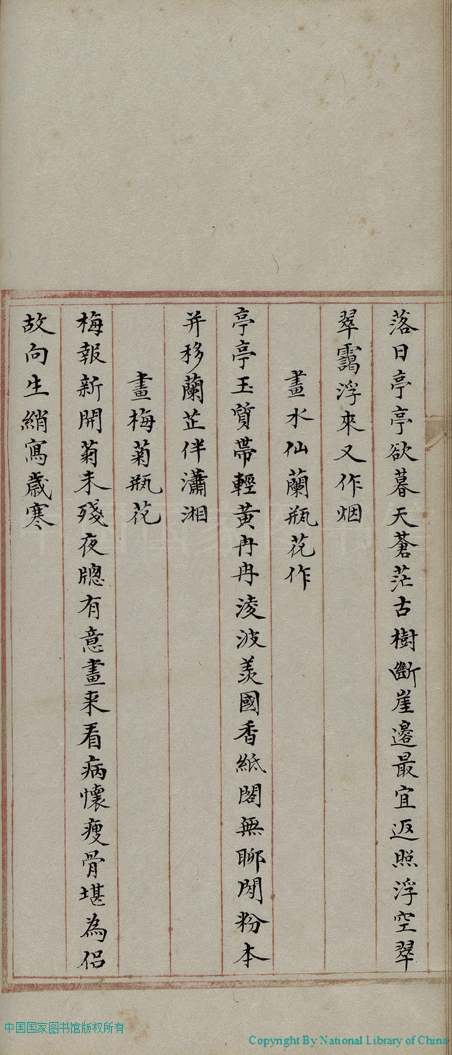 落日亭亭欲暮天蒼茫古樹斷崖邊最宜返照浮空翠
翠靄浮來又作烟
畫水仙蘭瓶花作
亭亭玉質帶輕黃冉冉淩波羨國香紙閣無聊閒粉本
并移蘭芷伴瀟湘
畫梅菊瓶花
梅報新開菊未殘夜牕有意畫来看病懷瘦骨堪為侶
故向生綃寫歳寒
中国国家图书馆版权所有
Copyright By National Library of China